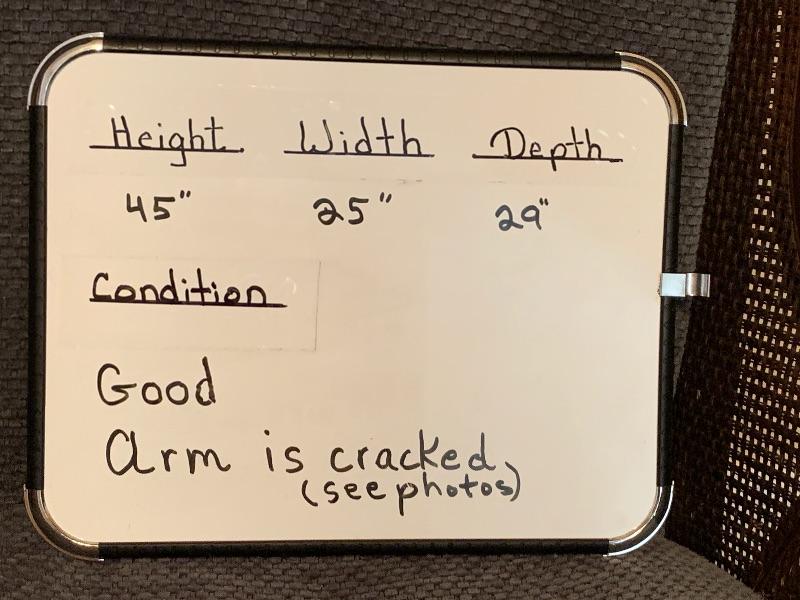 Height Width Depth
45" 25" 29"
Condition
Good
Arm is cracked
(see photos)